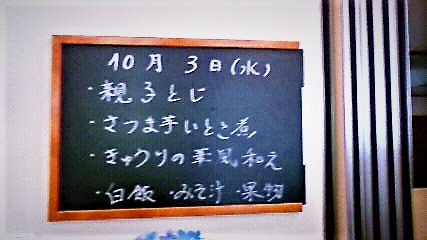 10月 3日(水)
・親子とじ
・さつま芋いとこ煮
・きゅうりの華風和え
・白飯 ・みそ汁 ・果物